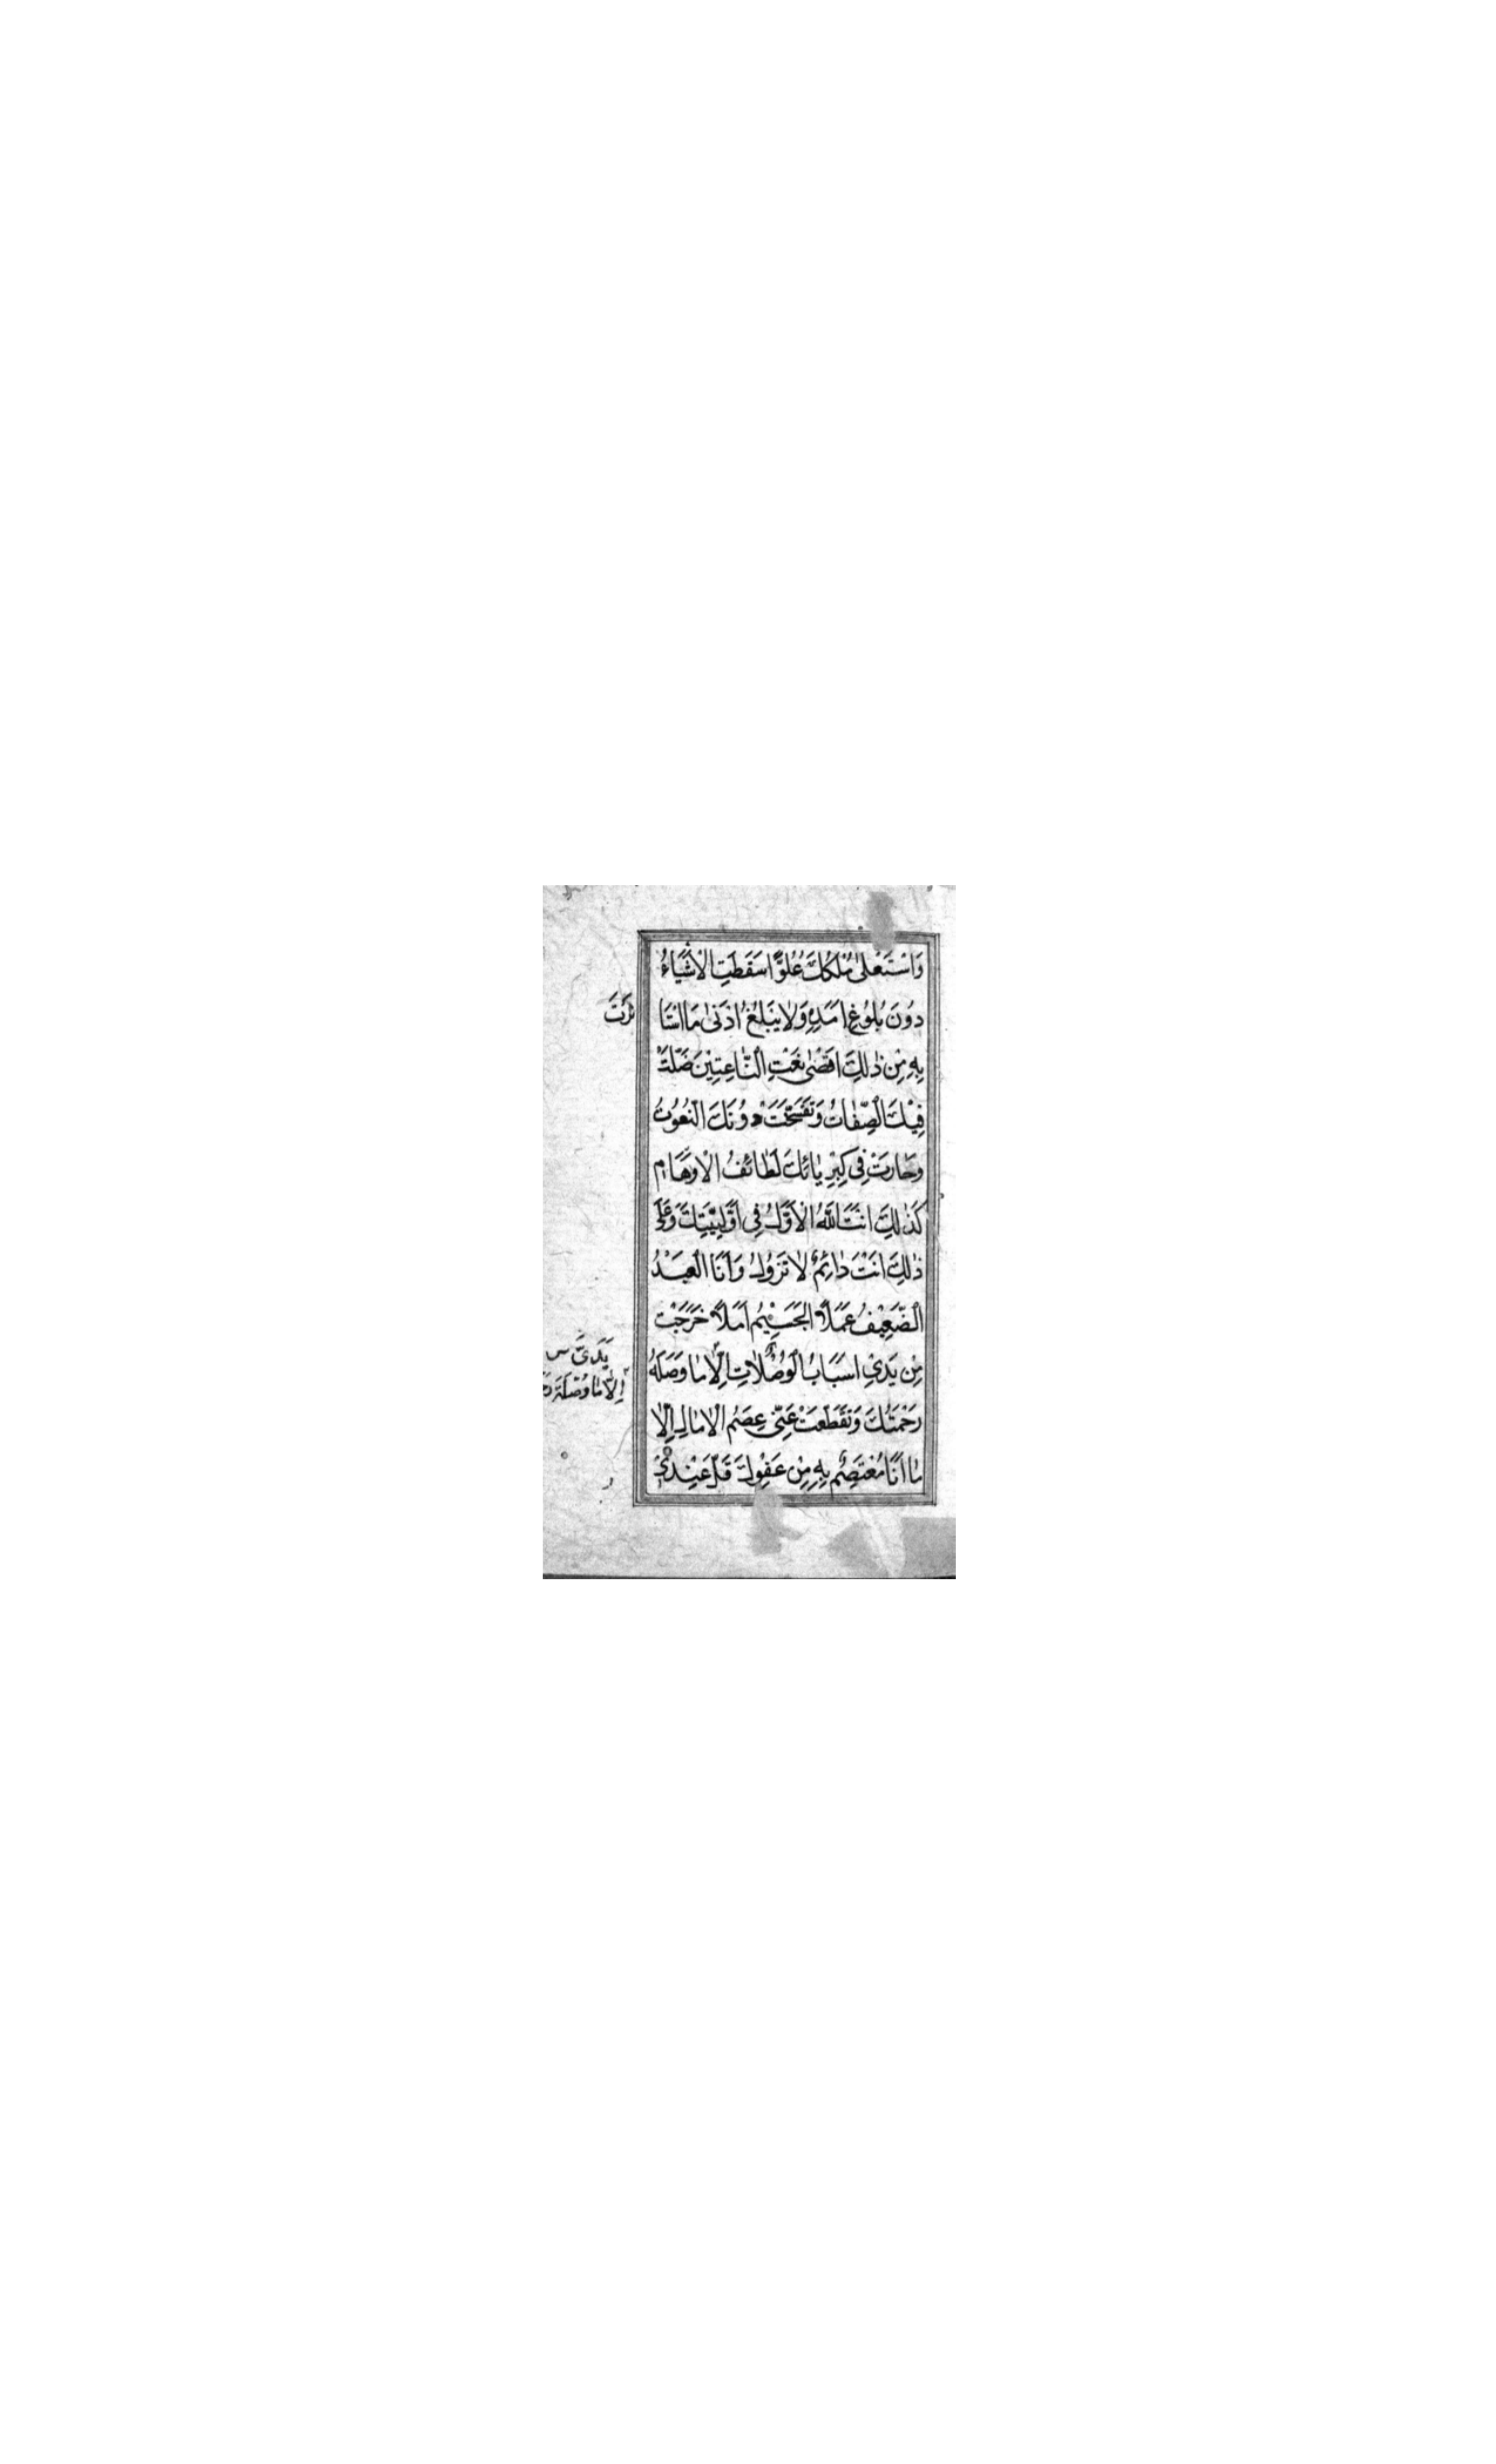 وَاسْتَعْلىٰ مُلْكُكَ عُلُوًّا سَقَطَتِ الْاَشْيَاءُ
دُونَ بُلُوغِ اَمَدِهِ وَلَا يَبْلُغُ اَدْنىٰ مَا اسْتَا
ثَرْتَ
بِهِ مِنْ ذٰلِكَ اَقْصٰى نَعْتِ النَّاعِتِيْنَ ضَلَّتْ
فِيْكَ الصِّفَاتُ وَتَفَسَّخَتْ دُونَكَ النُّعُوْتُ
وَحَارَتْ فِى كِبْرِيَائِكَ لَطَائِفُ الْاَوْهَامِ
كَذٰلِكَ اَنْتَ اللّٰهُ الْاَوَّلُ فِى اَوَّلِيَّتِكَ وَعَلىٰ
ذٰلِكَ اَنْتَ دَائِمٌ لَا تَزُوْلُ وَاَنَا الْعَبْدُ
الضَّعِيْفُ عَمَلًا الْجَسِيْمُ اَمَلًا خَرَجَتْ
مِنْ يَدِىْ اَسْبَابُ الْوُصُلَاتِ اِلَّا مَا وَصَلَهُ
يَدَىَّ س
اِلَّا مَا وُصْلَة
رَحْمَتُكَ وَتَقَطَّعَتْ عَنِّى عِصَمُ الْاٰمَالِ اِلَّا
مَا اَنَا مُعْتَصِمٌ بِهِ مِنْ عَفْوِكَ قَلَّ عِنْدِىْ